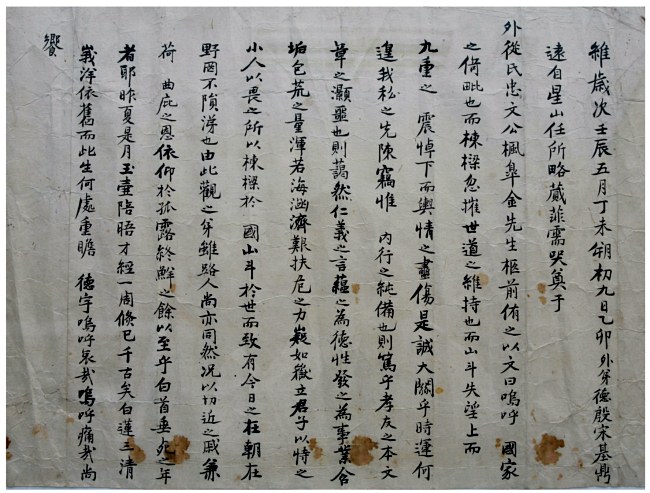 維歲次壬辰五月丁未朔初九日乙卯外弟德殷宋基鼎
遠自星山任所略蕆菲需哭奠于
外從氏忠文公楓皐金先生柩前侑之以文曰嗚呼 國家
之倚毗也而棟樑忽摧世道之維持也而山斗失望上而
九重之 震悼下而輿情之盡傷是誠大關乎時運何
遑我私之先陳竊惟 內行之純備也則篤乎孝友之本文
章之灝噩也則藹然仁義之言蘊之爲德性發之爲事業含
垢包荒之量渾若海涵濟難扶危之力嶷如嶽立君子以恃之
小人以畏之所以棟樑於 國山斗於世而致有今日之在朝在
野罔不隕涕也由此觀之雖路人尙亦同然况以切近之戚兼
荷 曲庇之恩依仰於孤露終鮮之餘以至乎白首垂死之年
者耶昨夏是月玉壺陪晤才經一周倐已千古矣白蓮三清
峩洋依舊而此生何處重瞻 德宇嗚呼哀哉嗚呼痛哉尙
饗